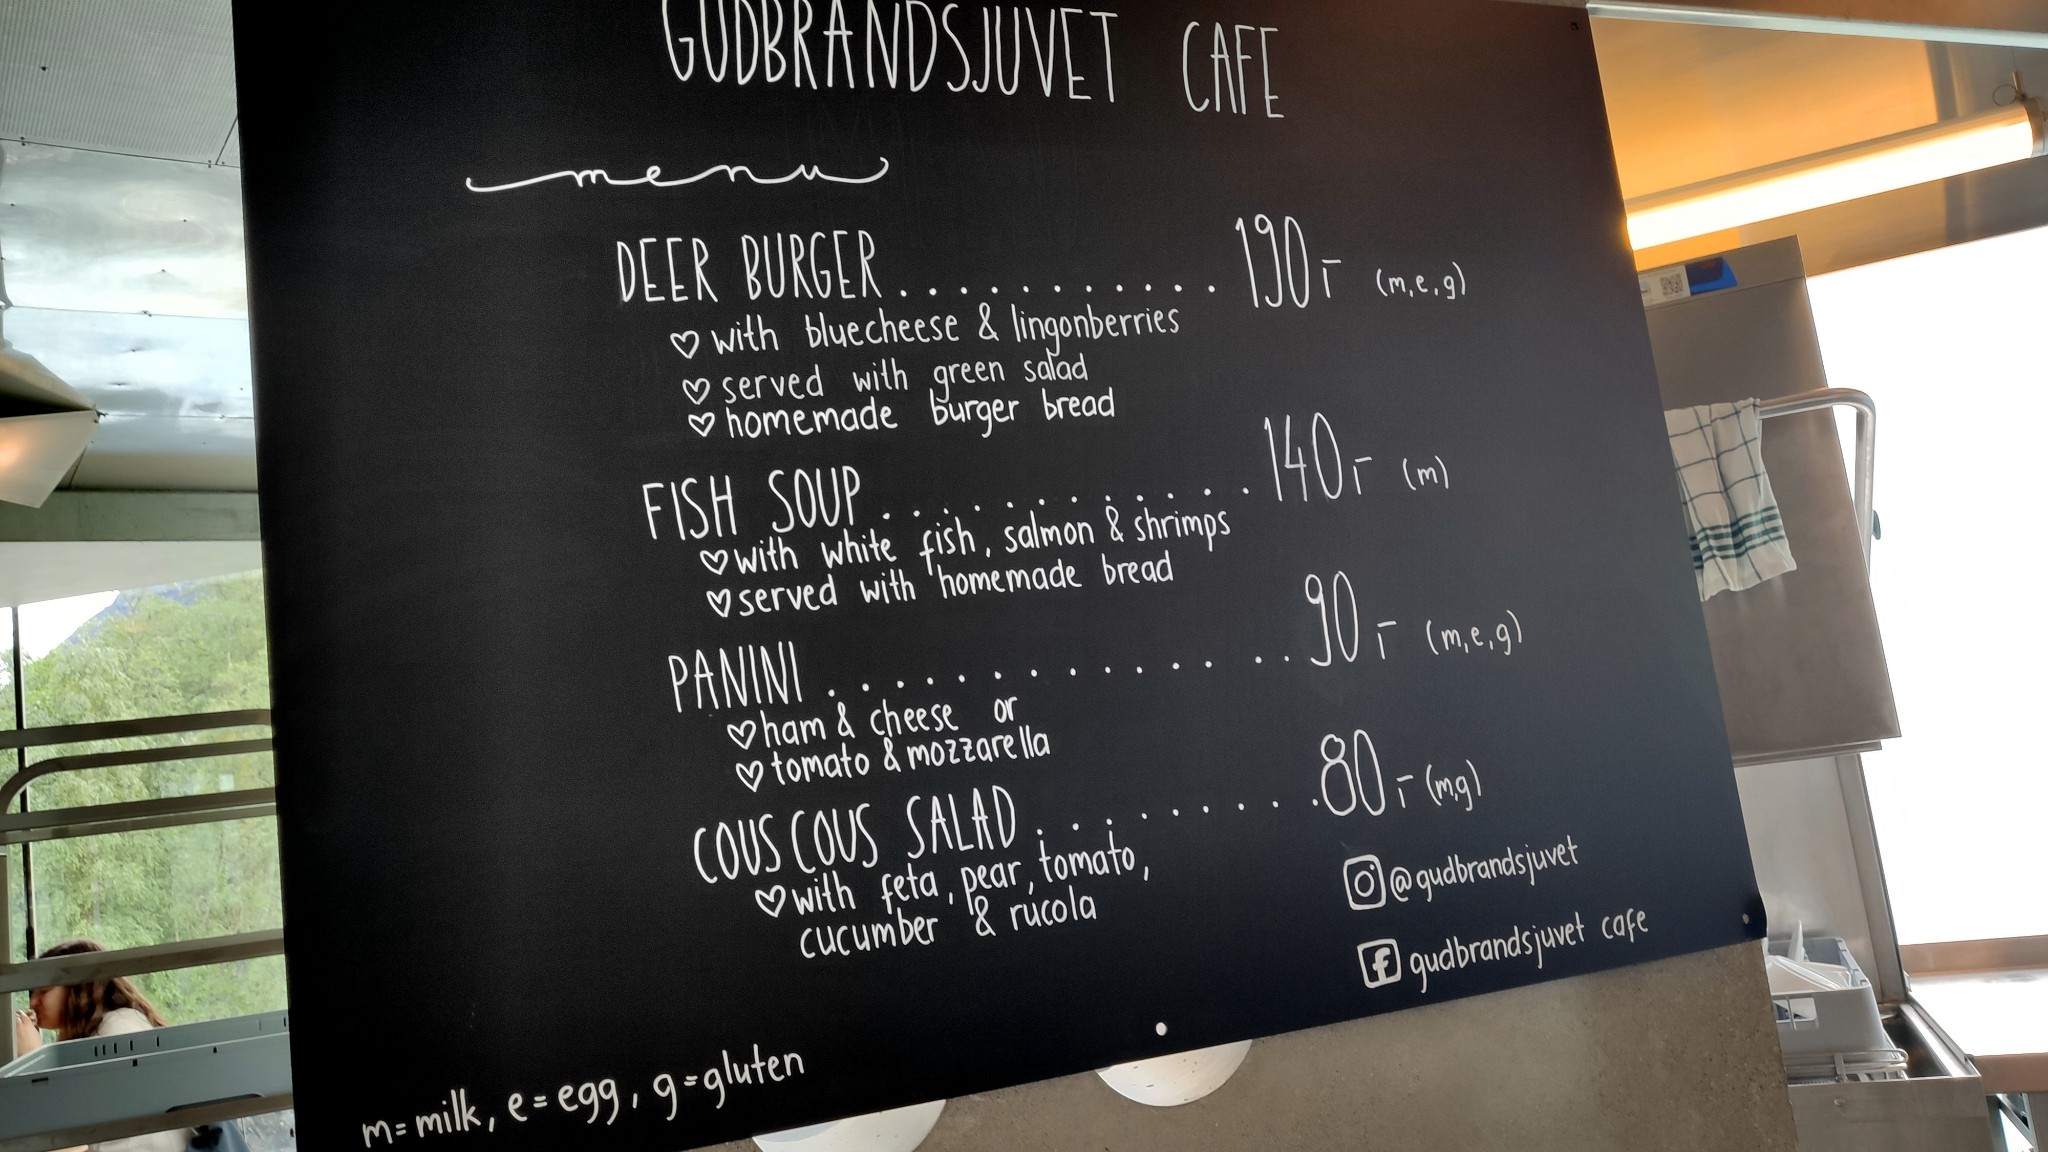 GUDBRANDSJUVET CAFE
menu
DEER BURGER ........... 190,- (m,e,g)
♡ with bluecheese & lingonberries
♡ served with green salad
♡ homemade burger bread
FISH SOUP ............ 140,- (m)
♡ with white fish, salmon & shrimps
♡ served with homemade bread
PANINI ............... 90,- (m,e,g)
♡ ham & cheese or
♡ tomato & mozzarella
COUSCOUS SALAD ......... 80,- (m,g)
♡ with feta, pear, tomato,
cucumber & rucola
@gudbrandsjuvet
gudbrandsjuvet cafe
m=milk, e=egg, g=gluten